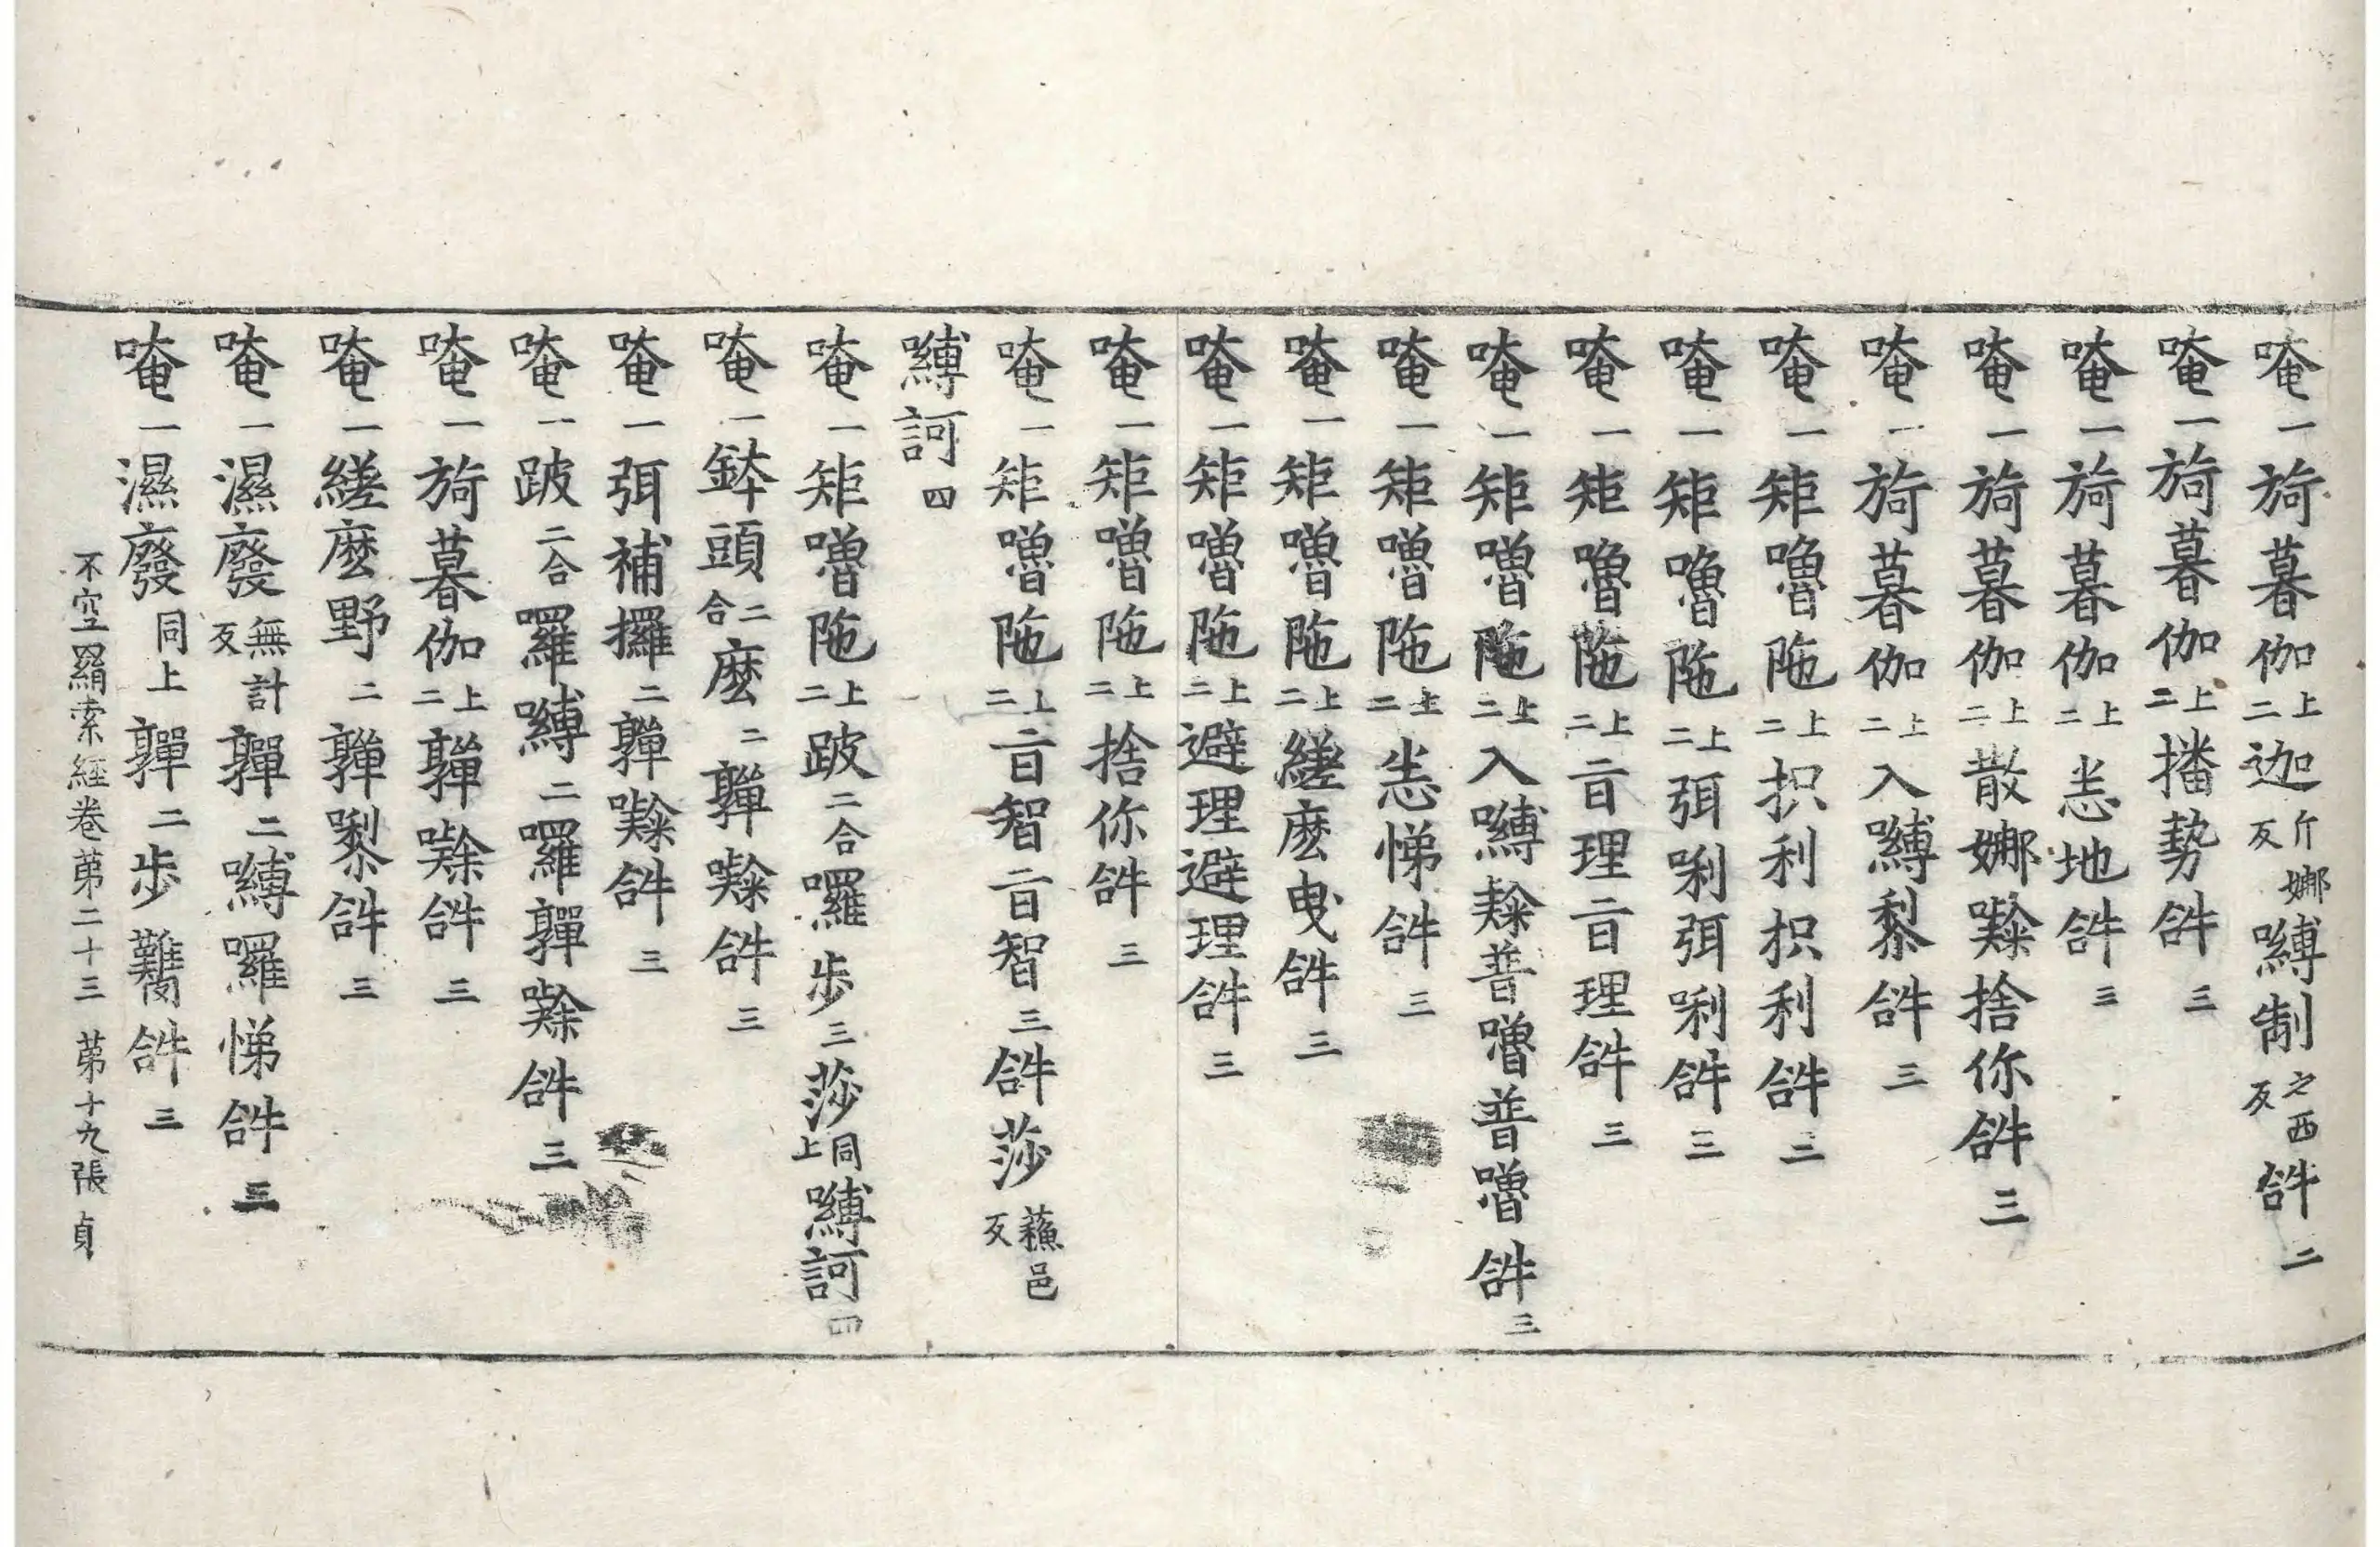 唵一旖暮伽上二迦斤娜反嚩制之西反𤙖二
唵一旖暮伽上二播勢𤙖三
唵一旖暮伽上二恙地𤙖三
唵一旖暮伽上二散娜㘑捨你𤙖三
唵一旖暮伽上二入嚩黎𤙖三
唵一矩嚕陁上二抧利抧利𤙖三
唵一矩嚕陁上二弭唎弭唎𤙖三
唵一矩嚕陁上二理理𤙖三
唵一矩嚕陁上二入嚩普嚕普嚕𤙖三
唵一矩嚕陁上二恙悌𤙖三
唵一矩嚕陁上二縒麽曳𤙖三
唵一矩嚕陁上二避理避理𤙖三
唵一矩嚕陁上二捨你𤙖三
唵一矩嚕陁上二智智三𤙖莎蘓邑反
嚩訶四
唵一矩嚕陁上二跛二合囉步三莎同上嚩訶四
唵一鉢頭二合麽二㘑𤙖三
唵一弭補攞二㘑𤙖三
唵一跛二合囉嚩二囉𤙖三
唵一旖暮伽上二𤙖三
唵一縒麽野二𤙖三
唵一濕廢無計反二嚩囉悌𤙖三
唵一濕廢同上二步𤙖三
不空羂索經卷第二十三 第十九張 貞